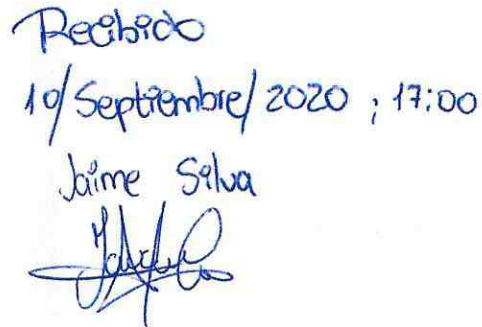 Recibido
10/Septiembre/2020 ; 17:00
Jaime Silva